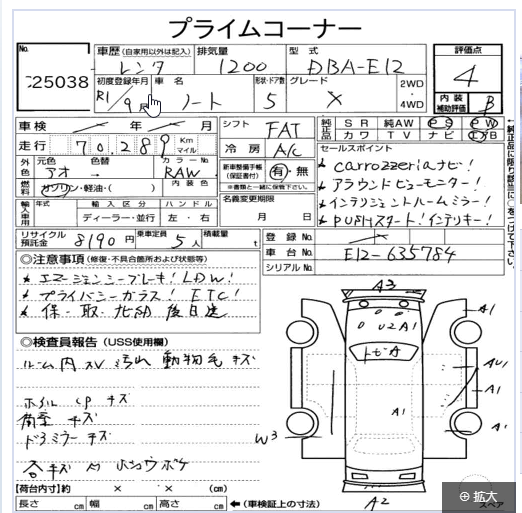 プライムコーナー
No. 25038
車歴 (自家用以外は記入) 排気量 型式 評価点
レンタ 1200 DBA-E12 4
初度登録年月 車名 形状・ドア数 グレード 2WD・4WD 内装補助評価
R1/9月 ノート 5 X B
車検 年 月 シフト FAT 純正品 SR 純AW PS PW
カワ TV ナビ エアB
走行 70,289 Km マイル 冷房 A/C
セールスポイント
外色 元色 色替 カラーNo. 内装色
アオ → RAW
新車整備手帳(保証書付) 有・無
※書類と一緒に保管下さい。
燃料 ガソリン・軽油・( )
★carrozzeriaナビ!
★アラウンドビューモニター!
★インテリジェントルームミラー!
★PUSHスタート!インテリキー!
↑純正品に限り該当に○をつけて下さい。
輸入車用 年式 輸入区分 ハンドル
ディーラー・並行 左・右
名義変更期限
月 日
リサイクル預託金 8190円 乗車定員 5人 積載量 t
登録No.
車台No. E12-635784
シリアルNo.
◎注意事項 (修復・不具合箇所および状態等)
★エマージェンシーブレーキ!LDW!
★プライバシーガラス!ETC!
★保・取・記録 後日送
◎検査員報告 (USS使用欄)
ルーム内 スレ 汚れ 動物毛 キズ
ホイル キズ
キズ
ドアミラー キズ
各キズ
A3
U2 A1
トビA
A1
AU1
A1
A1
A1
W3
A2
スペア
【荷台内寸】約 × × (cm)
長さ cm 幅 cm 高さ cm ←(車検証上の寸法)
⊕ 拡大